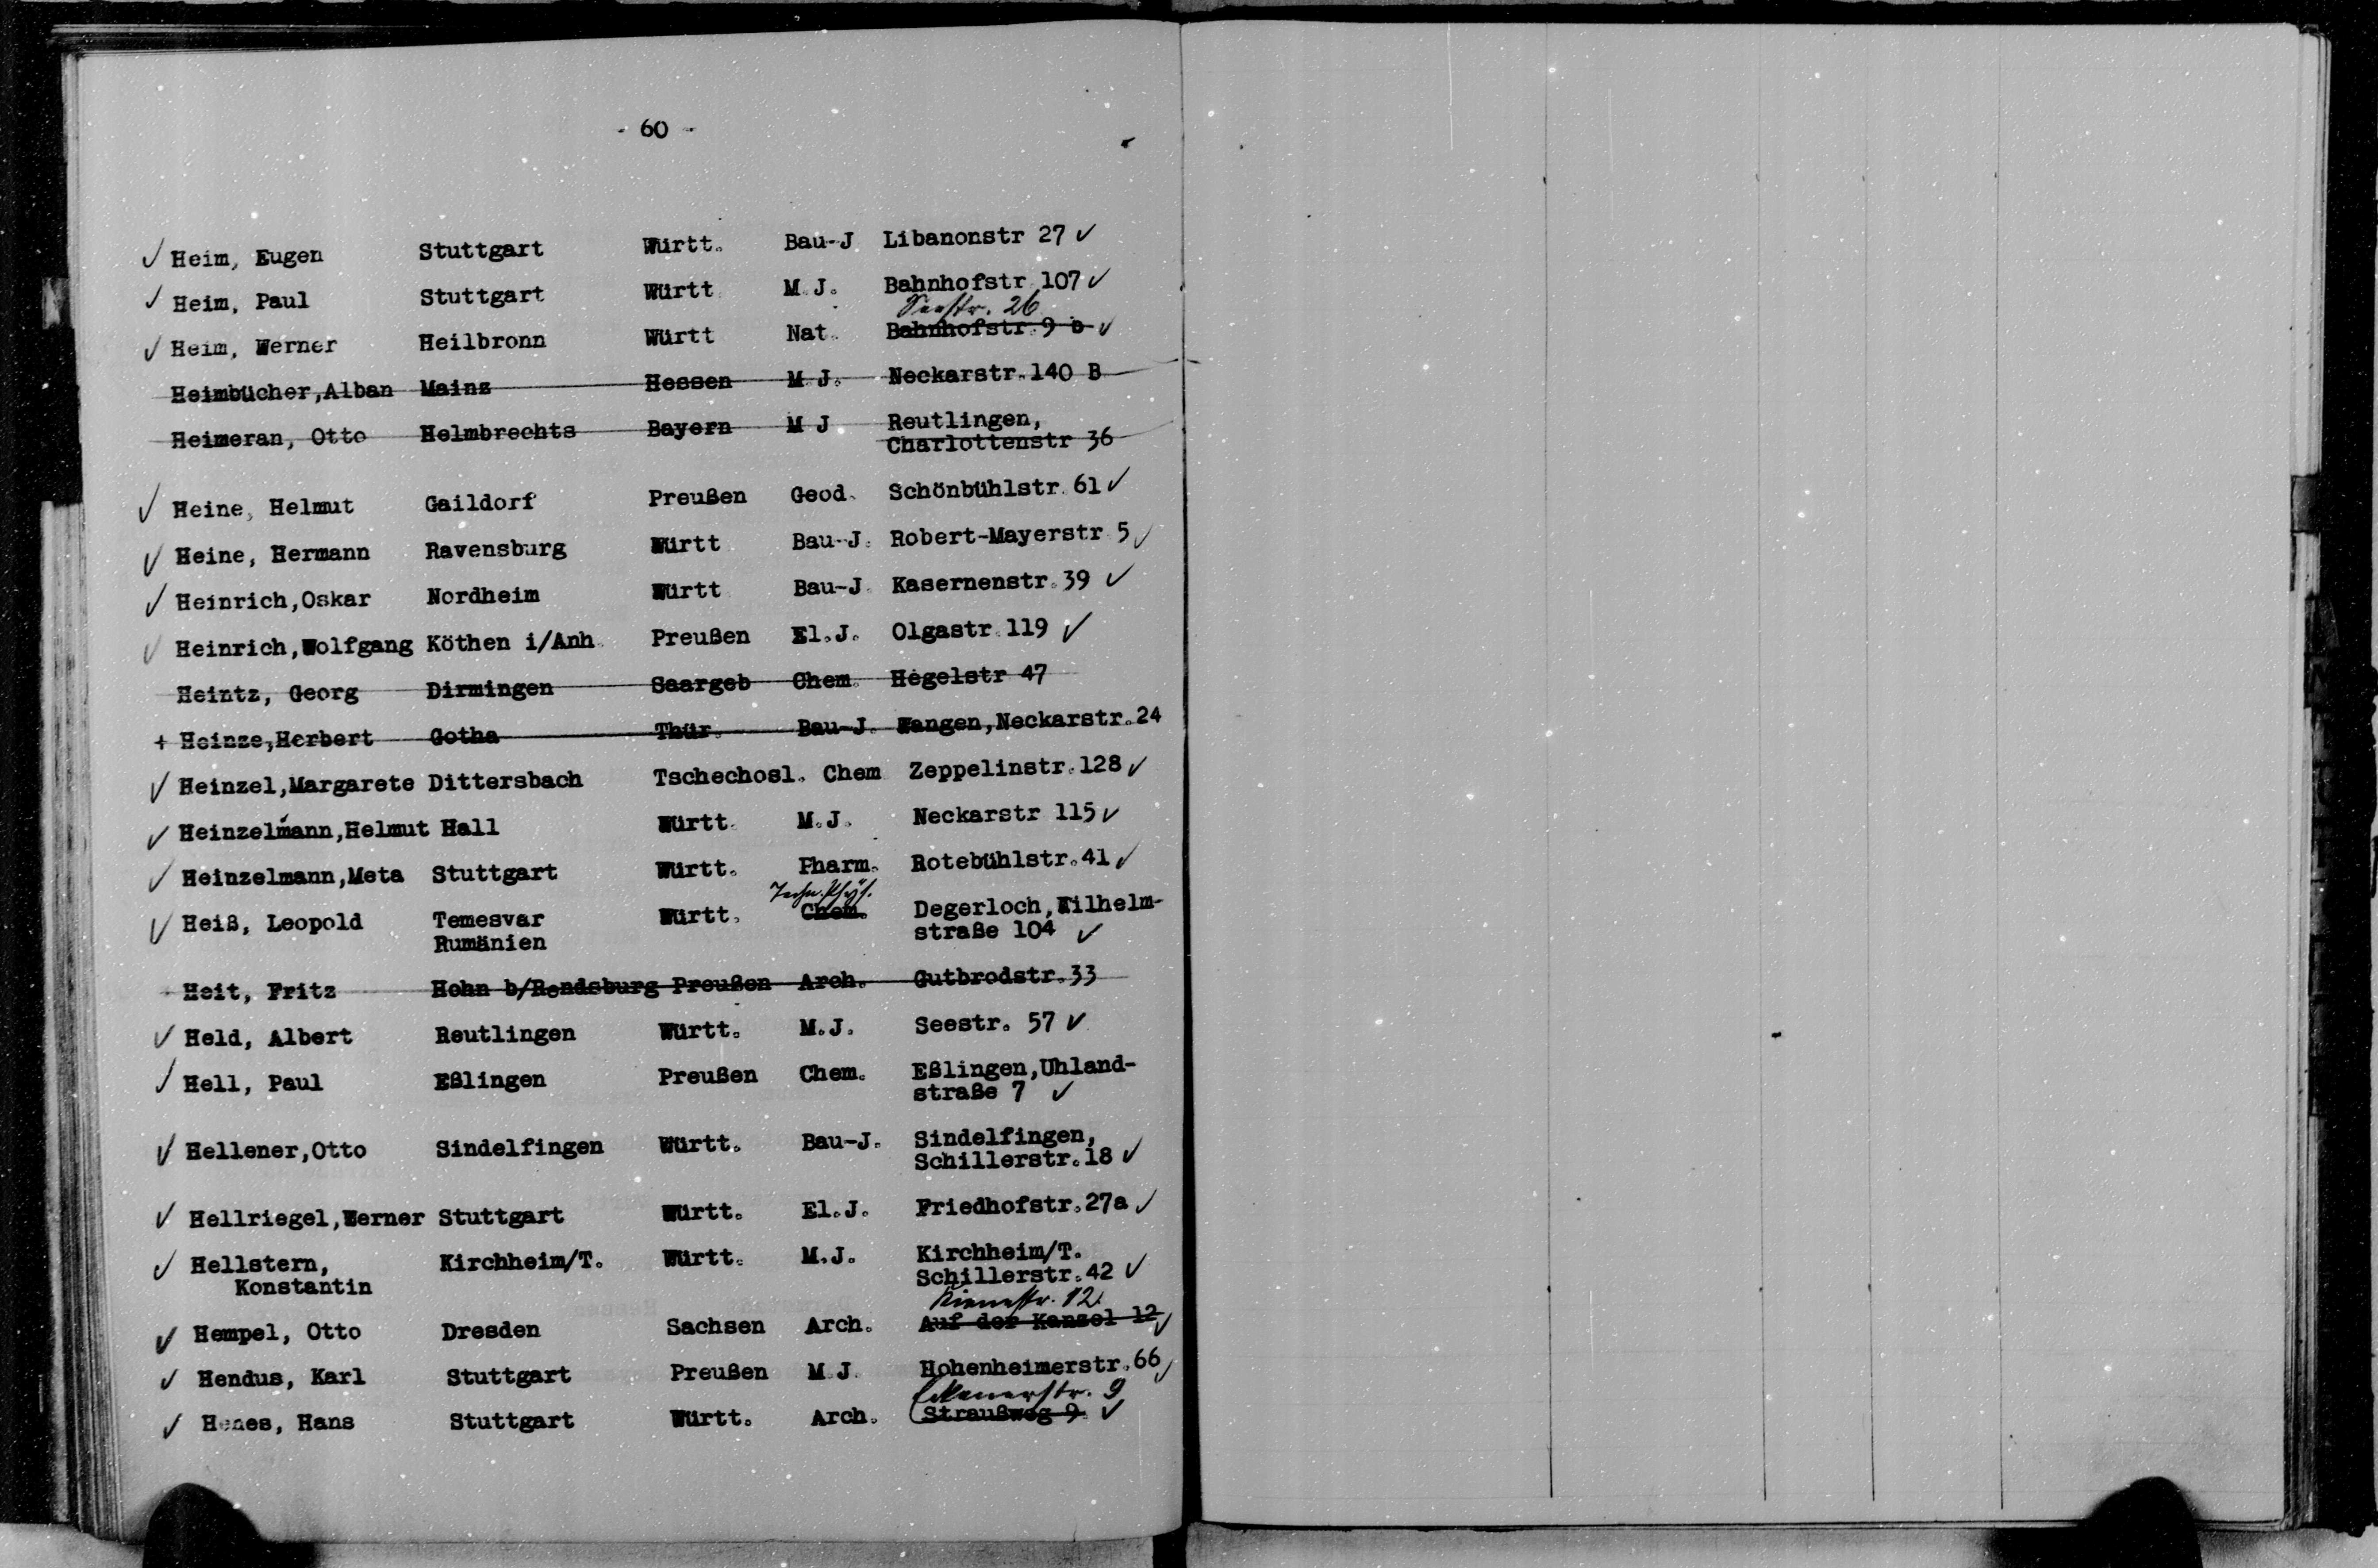 - 60 -
✓ Heim, Eugen Stuttgart Württ. Bau-J Libanonstr 27 ✓
✓ Heim, Paul Stuttgart Württ M.J. Bahnhofstr 107 ✓
Seestr. 26
✓ Heim, Werner Heilbronn Württ Nat. Bahnhofstr. 9 b ✓
Heimbücher,Alban Mainz Hessen M.J. Neckarstr.140 B
Heimeran, Otto Helmbrechts Bayern M J Reutlingen,
Charlottenstr 36
✓ Heine, Helmut Gaildorf Preußen Geod. Schönbühlstr. 61 ✓
✓ Heine, Hermann Ravensburg Württ Bau-J. Robert-Mayerstr 5 ✓
✓ Heinrich,Oskar Nordheim Württ Bau-J. Kasernenstr.39 ✓
✓ Heinrich,Wolfgang Köthen i/Anh. Preußen El.J. Olgastr.119 ✓
Heintz, Georg Dirmingen Saargeb Chem. Hegelstr 47
+ Heinze,Herbert Gotha Thür. Bau-J. Wangen,Neckarstr.24
✓ Heinzel,Margarete Dittersbach Tschechosl. Chem Zeppelinstr.128 ✓
✓ Heinzelmann,Helmut Hall Württ. M.J. Neckarstr 115 ✓
✓ Heinzelmann,Meta Stuttgart Württ. Pharm. Rotebühlstr.41 ✓
Techn. Phys.
✓ Heiß, Leopold Temesvar Württ. Chem. Degerloch,Wilhelm-
Rumänien straße 104 ✓
Heit, Fritz Hohn b/Rendsburg Preußen Arch. Gutbrodstr.33
✓ Held, Albert Reutlingen Württ. M.J. Seestr. 57 ✓
✓ Hell, Paul Eßlingen Preußen Chem. Eßlingen,Uhland-
straße 7 ✓
✓ Hellener,Otto Sindelfingen Württ. Bau-J. Sindelfingen,
Schillerstr.18 ✓
✓ Hellriegel,Werner Stuttgart Württ. El.J. Friedhofstr.27a ✓
✓ Hellstern, Kirchheim/T. Württ. M.J. Kirchheim/T.
Konstantin Schillerstr.42 ✓
12
✓ Hempel, Otto Dresden Sachsen Arch. Auf der Kanzel 12 ✓
✓ Hendus, Karl Stuttgart Preußen M.J. Hohenheimerstr.66 ✓
9
✓ Henes, Hans Stuttgart Württ. Arch. Straußweg 9 ✓